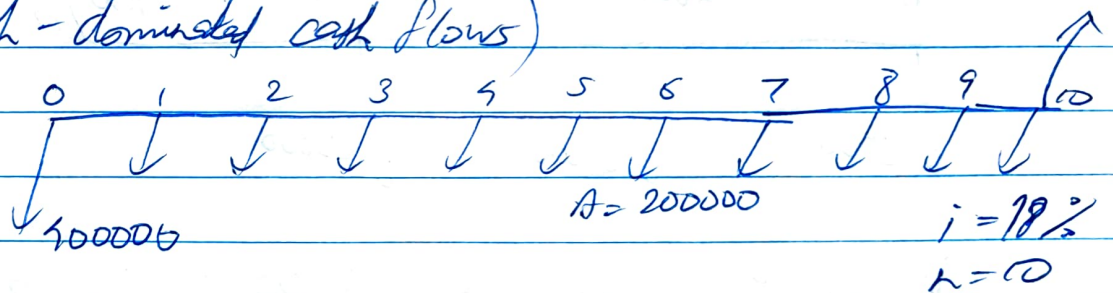 -dominated cash flows)
0 1 2 3 4 5 6 7 8 9 10
A = 200000
400000
i = 18%
n = 10